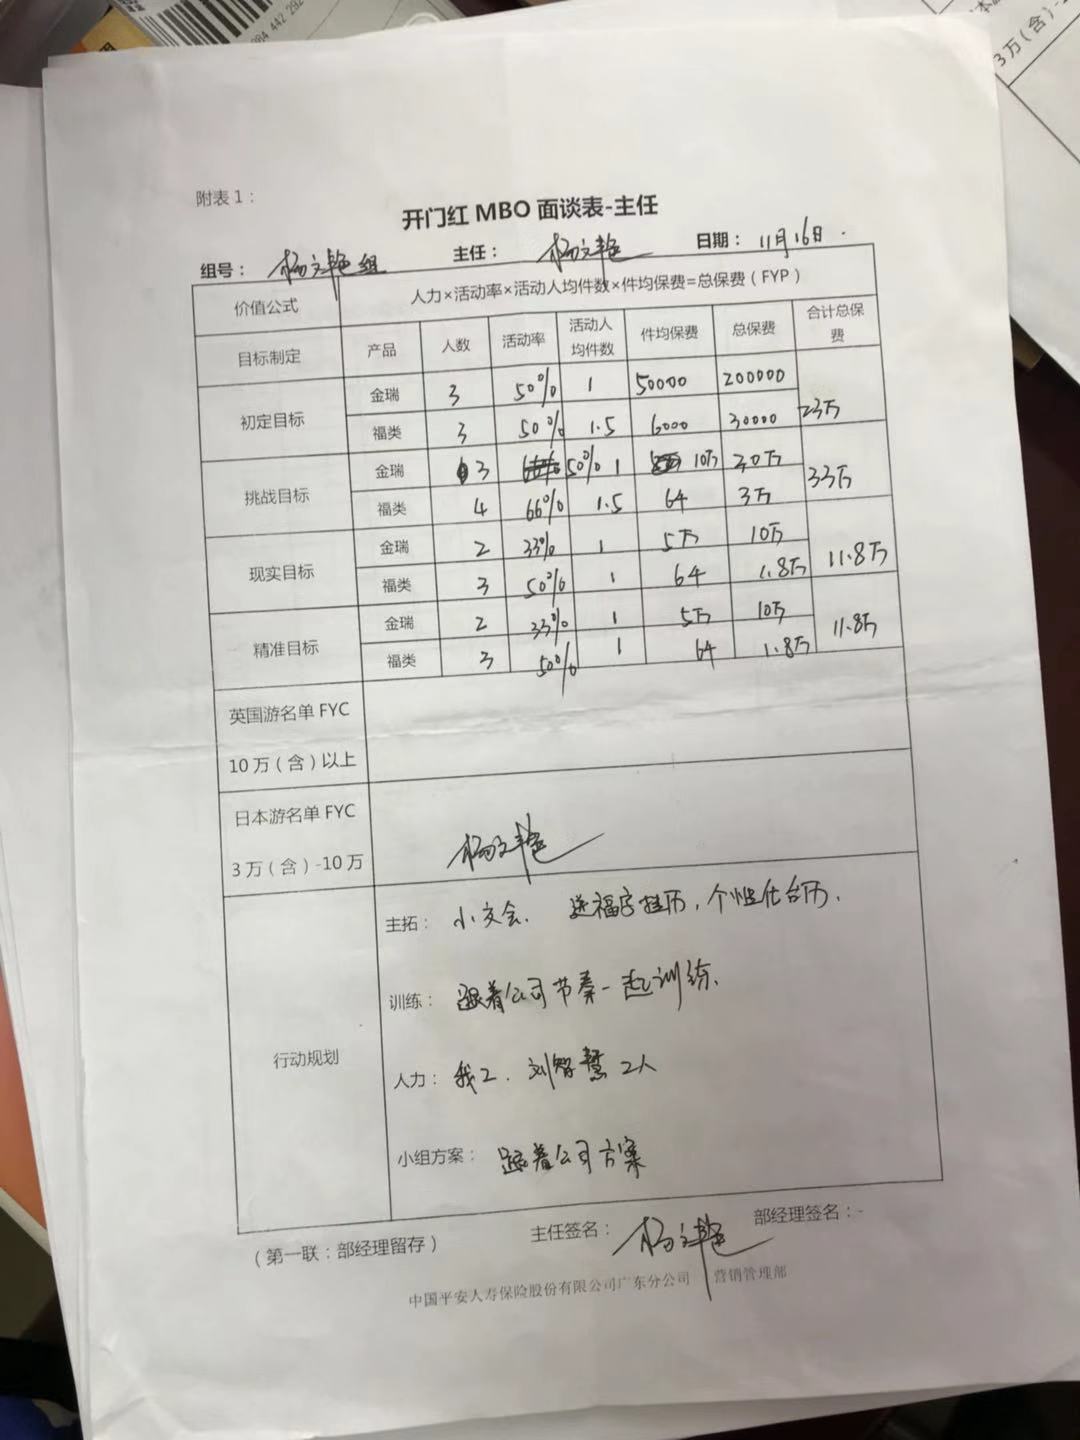 084 442 292
3万(含)-
附表 1：
开门红 MBO 面谈表-主任
组号： 杨文艳组 主任： 杨文艳 日期： 11月16日.
价值公式 人力×活动率×活动人均件数×件均保费=总保费（FYP）
目标制定 产品 人数 活动率 活动人均件数 件均保费 总保费 合计总保费
初定目标 金瑞 3 50% 1 50000 200000 23万
福类 3 50% 1.5 6000 30000
挑战目标 金瑞 3 50% 1 10万 30万 33万
福类 4 66% 1.5 64 3万
现实目标 金瑞 2 33% 1 5万 10万 11.8万
福类 3 50% 1 64 1.8万
精准目标 金瑞 2 33% 1 5万 10万 11.8万
福类 3 50% 1 64 1.8万
英国游名单 FYC
10万（含）以上
日本游名单 FYC
3万（含）-10万 杨文艳
行动规划
主拓： 小交会. 送福字挂历，个性化台历.
训练： 跟着公司节奏一起训练.
人力： 我2. 刘智慧 2人
小组方案： 跟着公司方案
（第一联：部经理留存） 主任签名： 杨文艳 部经理签名：-
中国平安人寿保险股份有限公司广东分公司 营销管理部